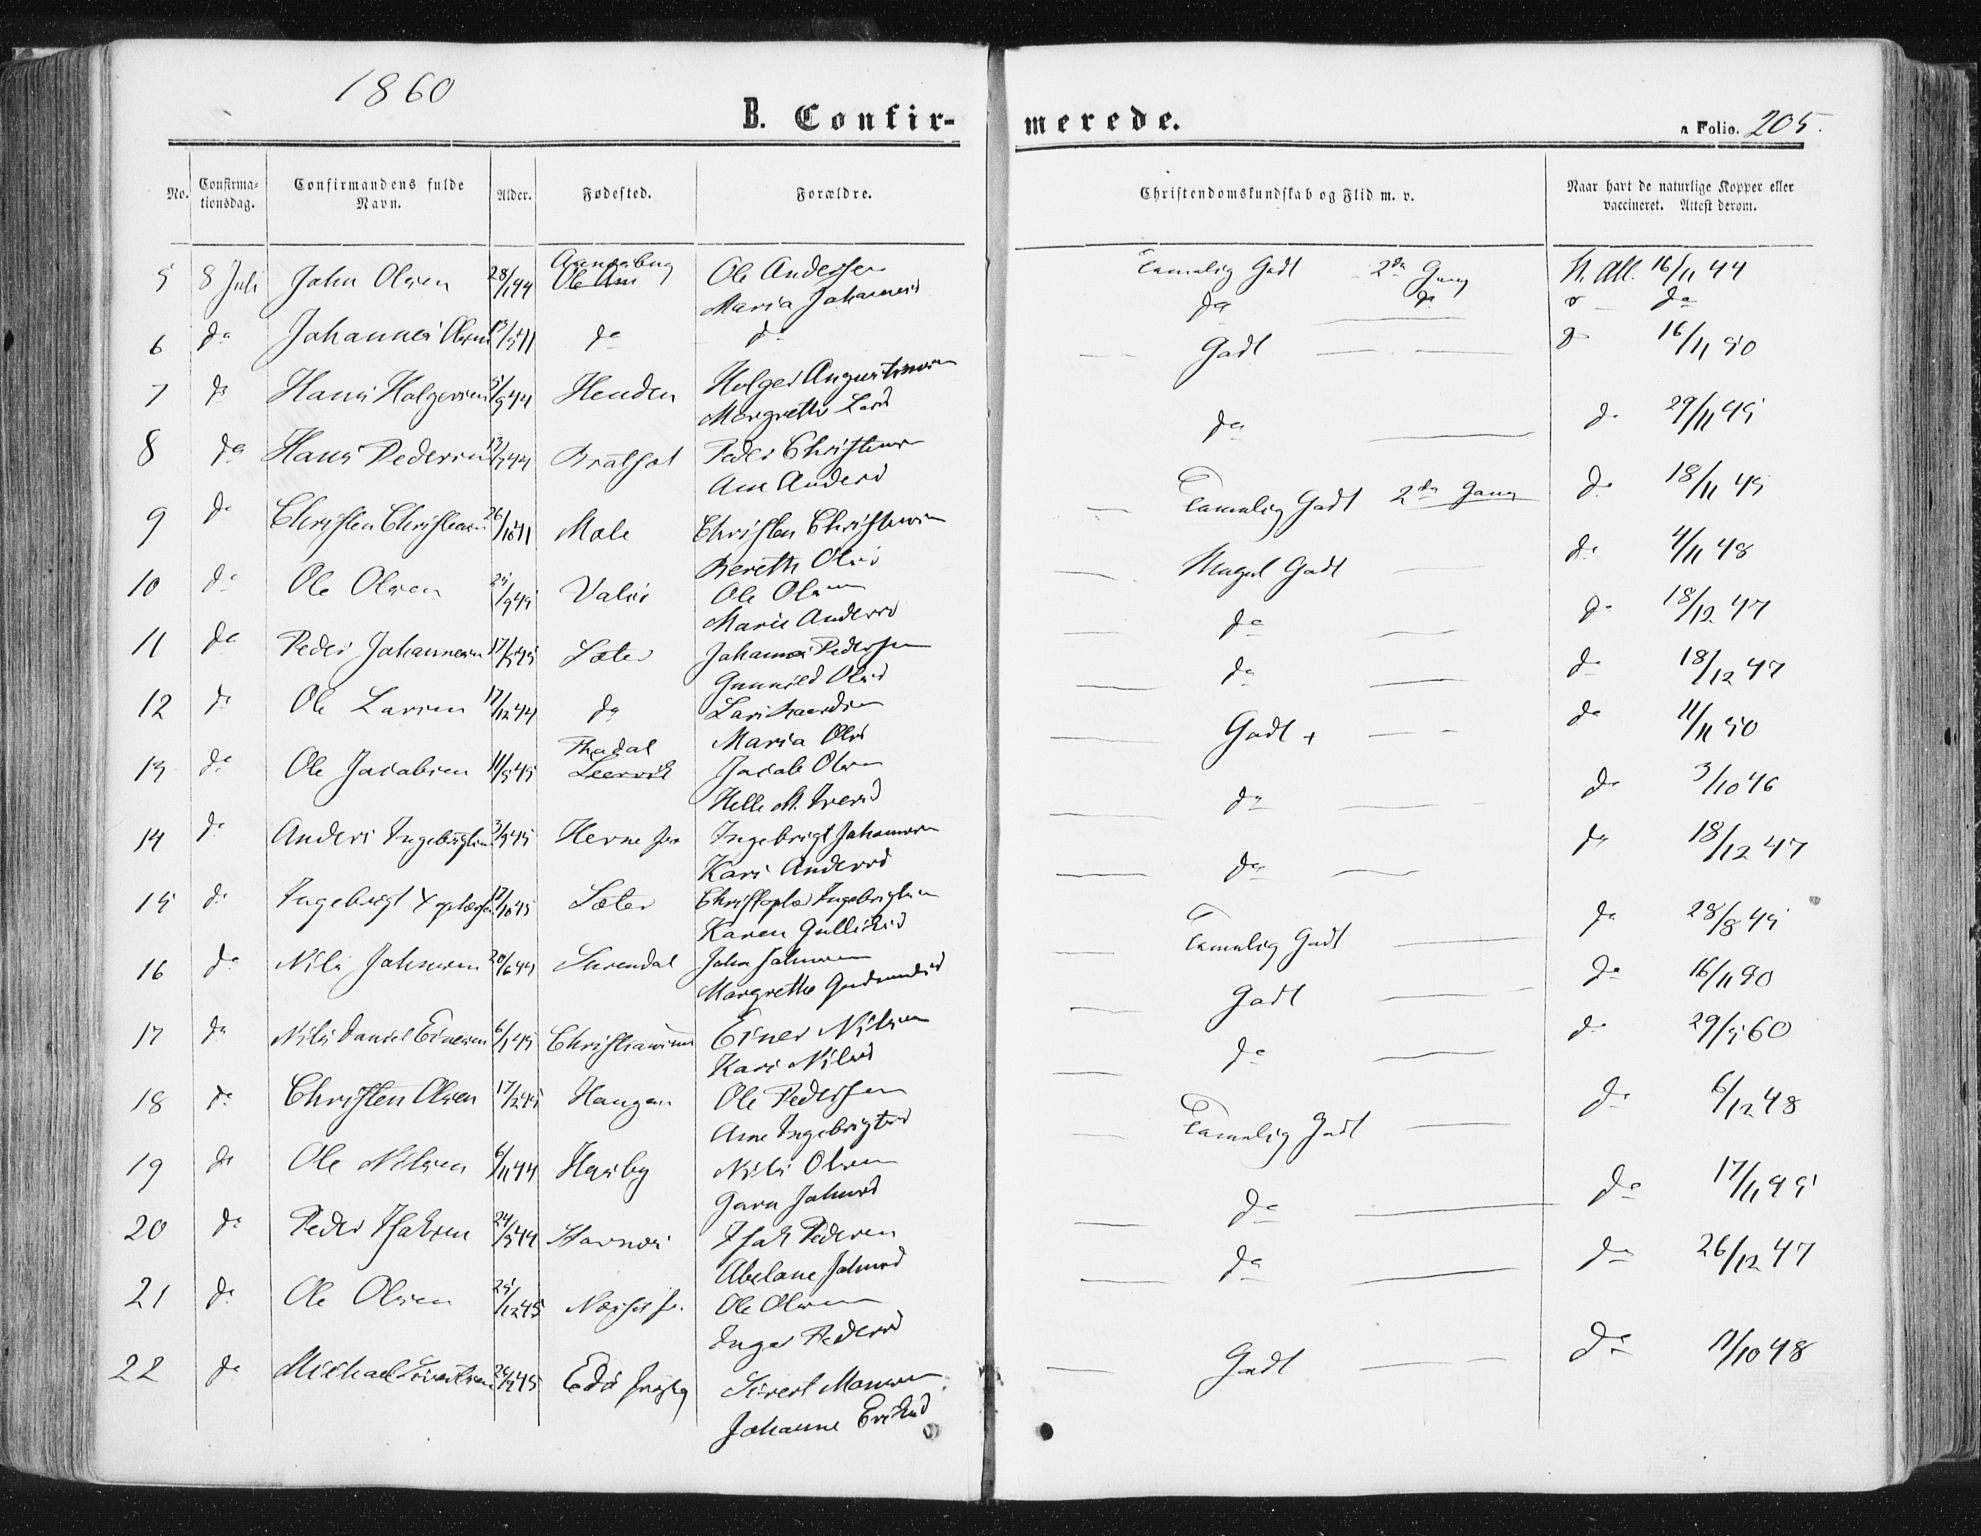 1860
B. Confirmerede.
a Folio. 205.
No. Confirmationsdag. Confirmandens fulde Navn. Alder. Fødested. Forældre. Christendomskundskab og Flid m. v. Naar havt de naturlige Kopper eller vaccineret. Attest derom.
5 8 Juli John Olsen 28/1 44 Ole Andersen Temmelig Godt 2den Gang Att. 16/11 44
Maria Johannesd do do do
6 do Johannes Olsen do do Godt 16/11 50
7 do Hans Holgersen 44 Henden Holger Augustinsen
Margrethe Larsd do do 29/11 45
8 do Hans Pedersen 44 Peder Christensen
Ane Andersd Temmelig Godt 2den Gang do 18/11 45
9 do Christen Christensen 26/10 41 Mole Christen Christensen
Berethe Olsd Meget Godt do 4/11 48
10 do Ole Olsen 25/9 45 Valsø Ole Olsen
Marit Andersd do do 18/12 47
11 do Peder Johannesen 17/5 45 Sæter Johannes Pedersen
Gunnild Olsd do do 18/12 47
12 do Ole Larsen 17/12 44 do Lars
Maria Olsd Godt + do 11/11 50
13 do Ole Jacobsen 11/5 45 Leervik Jacob Olsen
Helle M. Iversd do do 3/10 46
14 do Anders Ingebrigtsen 3/9 45 Herne Ingebrigt Johannesen
Kari Andersd do do 18/12 47
15 do Ingebrigt 17/10 45 Sæter Christopher Ingebrigtsen
Karen Gulliksd Temmelig Godt do 28/8 45
16 do Nils Johnsen 20/6 44 Surendal John Johnsen
Margrethe Gudmundsd Godt do 16/11 50
17 do Nils Daniel Einersen 6/1 45 Christiansund Einer Nilsen
Kari Nilsd do do 29/5 60
18 do Christen Olsen 17/2 45 Haugen Ole Pedersen
Ane Ingebrigtsd Temmelig Godt do 6/12 48
19 do Ole Nilsen 6/11 44 Husby Nils Olsen
Johnsd do do 17/11 45
20 do Peder Isaksen 24/9 44 Stavnes Isak Pedersen
Abelone Johnsd do do 26/12 47
21 do Ole Olsen 25/12 45 Ole Olsen
Inger Pedersd
22 do Michael Sivertsen 45 Edø Sivert Monsen Godt do 11/10 48
Johanne Eriksd